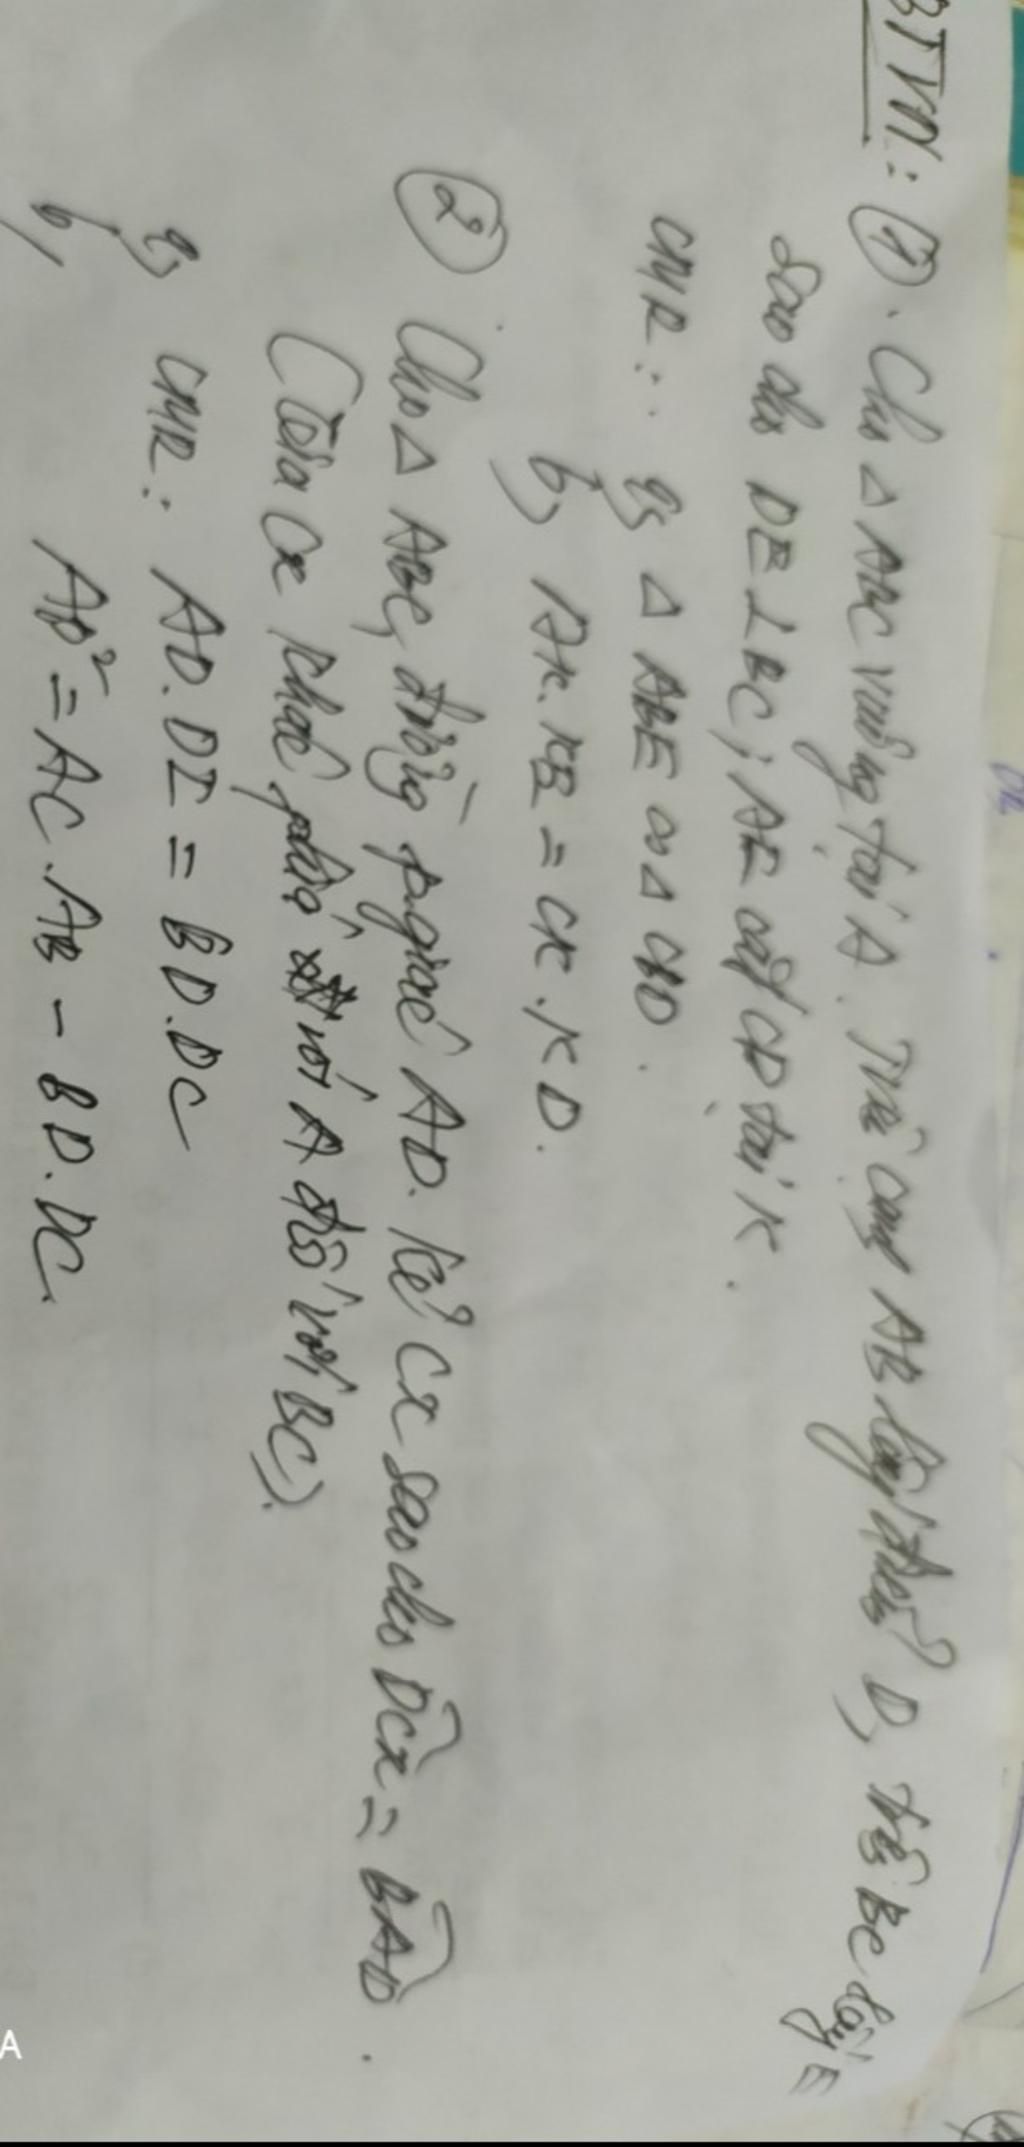 BTVN: ①. Cho △ ABC vuông tại A. Trên cạnh AB lấy điểm D, trên BC lấy E
sao cho DE ⊥ BC; AE cắt CD tại K.
CMR: a, △ ABE ∽ △ CBD.
b, AK.KE = CK.KD.
② Cho △ ABC, đường p.giác AD. Kẻ Cx sao cho DCx = BAD.
(Tia Cx khác phía với A đối với BC).
a, CMR: AD.DI = BD.DC
b, AD² = AC.AB - BD.DC.
A